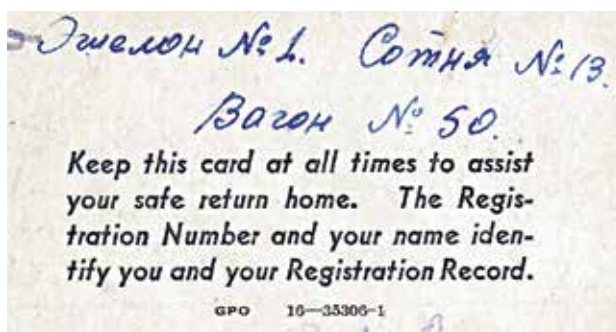 Эшелон № 1. Сотня № 13.
Вагон № 50.
Keep this card at all times to assist
your safe return home. The Regis-
tration Number and your name iden-
tify you and your Registration Record.
GPO 16—35306-1